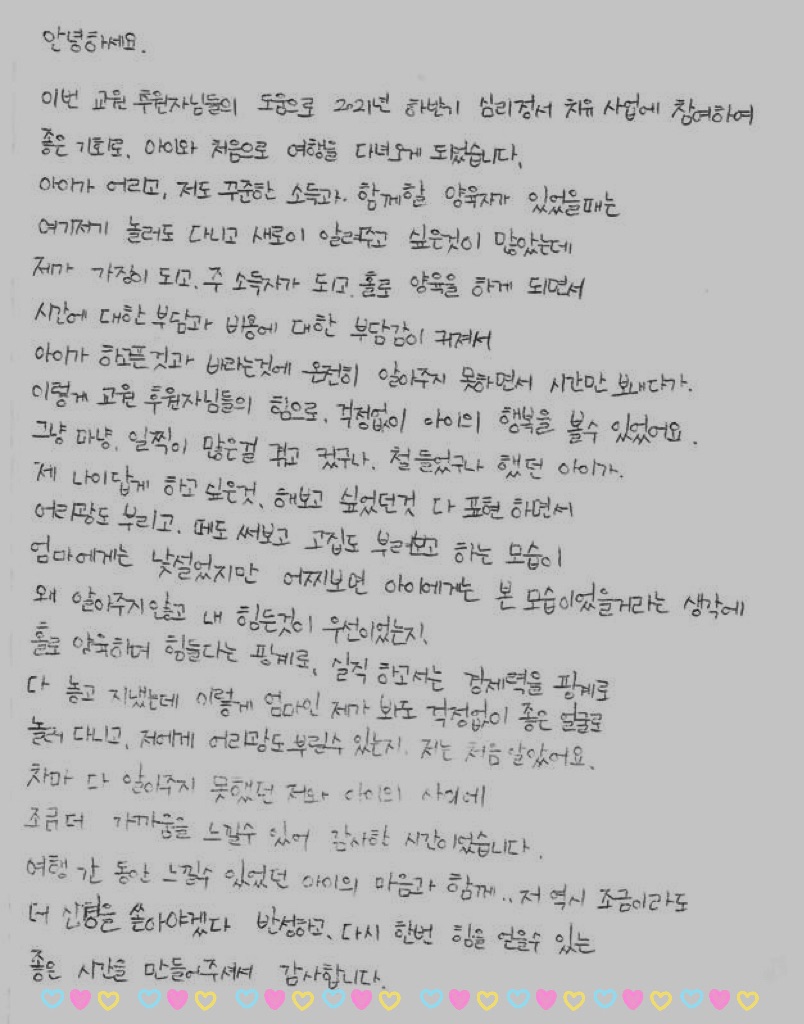 안녕하세요.
이번 교원 후원자님들의 도움으로 2021년 하반기 심리정서 치유 사업에 참여하여
좋은 기회로, 아이와 처음으로 여행을 다녀오게 되었습니다.
아이가 어리고, 저도 꾸준한 소득과. 함께할 양육자가 있었을때는
여기저기 놀러도 다니고 새로이 알려주고 싶은것이 많았는데
제가 가장이 되고, 주 소득자가 되고, 홀로 양육을 하게 되면서
시간에 대한 부담과 비용에 대한 부담감이 커져서
아이가 하고픈것과 바라는것에 온전히 알아주지 못하면서 시간만 보내다가.
이렇게 교원 후원자님들의 힘으로, 걱정없이 아이의 행복을 볼수 있었어요.
그냥 마냥, 일찍이 많은걸 겪고 컸구나. 철들었구나 했던 아이가.
제 나이답게 하고싶은것, 해보고 싶었던것 다 표현하면서
어리광도 부리고, 떼도 써보고 고집도 부려보고 하는 모습이
엄마에게는 낯설었지만 어찌보면 아이에게는 본 모습이었을거라는 생각에
왜 알아주지않고 내 힘든것이 우선이었는지,
홀로 양육하며 힘들다는 핑계로, 실직 하고서는 경제력을 핑계로
다 놓고 지냈는데 이렇게 엄마인 제가 봐도 걱정없이 좋은 얼굴로
놀러 다니고, 저에게 어리광도부릴수 있는지. 저는 처음 알았어요.
차마 다 알아주지 못했던 저와 아이의 사이에
조금더 가까움을 느낄수 있어 감사한 시간이었습니다.
여행 간 동안 느낄수 있었던 아이의 마음과 함께.. 저 역시 조금이라도
더 신경을 쏟아야겠다 반성하고, 다시 한번 힘을 얻을수 있는
좋은 시간을 만들어주셔서 감사합니다.